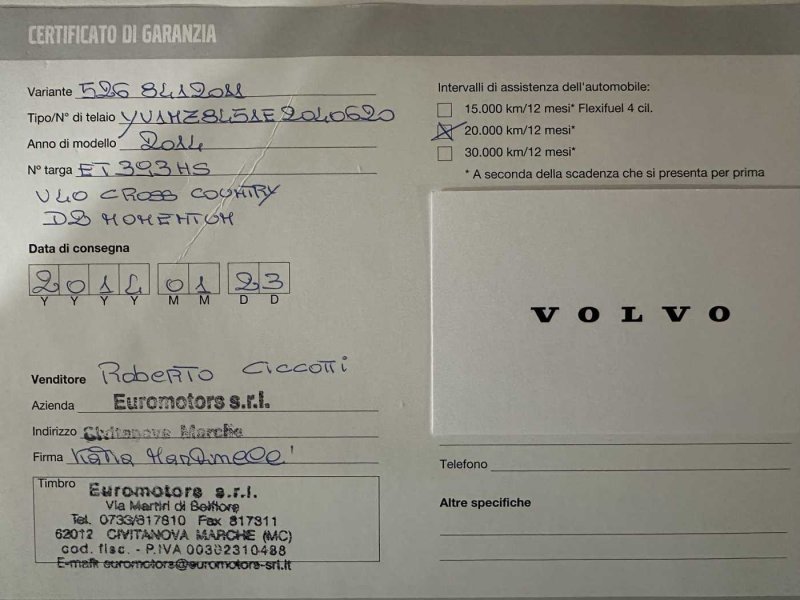 CERTIFICATO DI GARANZIA
Variante 526 8412011
Tipo/N° di telaio YV1MZ8451E2040620
Anno di modello 2014
N° targa ET393HS
V40 CROSS COUNTRY
D2 MOMENTUM
Data di consegna
2014 01 23
Y Y Y Y M M D D
Venditore ROBERTO CICCOTTI
Azienda Euromotors s.r.l.
Indirizzo Civitanova Marche
Firma Katia
Timbro
Euromotors s.r.l.
Via Martiri di Belfiore
Tel. 0733/817810 Fax 817811
62012 CIVITANOVA MARCHE (MC)
cod. fisc. - P.IVA 00302310488
E-mail: euromotors@euromotors-srl.it
Intervalli di assistenza dell'automobile:
15.000 km/12 mesi* Flexifuel 4 cil.
20.000 km/12 mesi*
30.000 km/12 mesi*
* A seconda della scadenza che si presenta per prima
VOLVO
Telefono
Altre specifiche